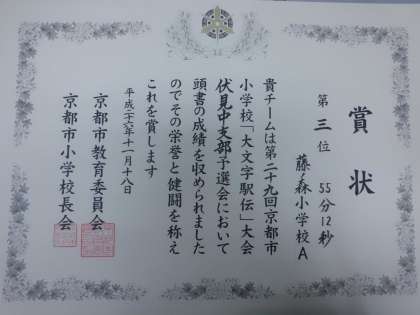 賞状
第三位 55分12秒
藤ノ森小学校A
貴チームは第二十九回京都市
小学校「大文字駅伝」大会
伏見中支部予選会において
頭書の成績を収められました
のでその栄誉と健闘を称え
これを賞します
平成二十六年十一月十八日
京都市教育委員会
京都市小学校長会